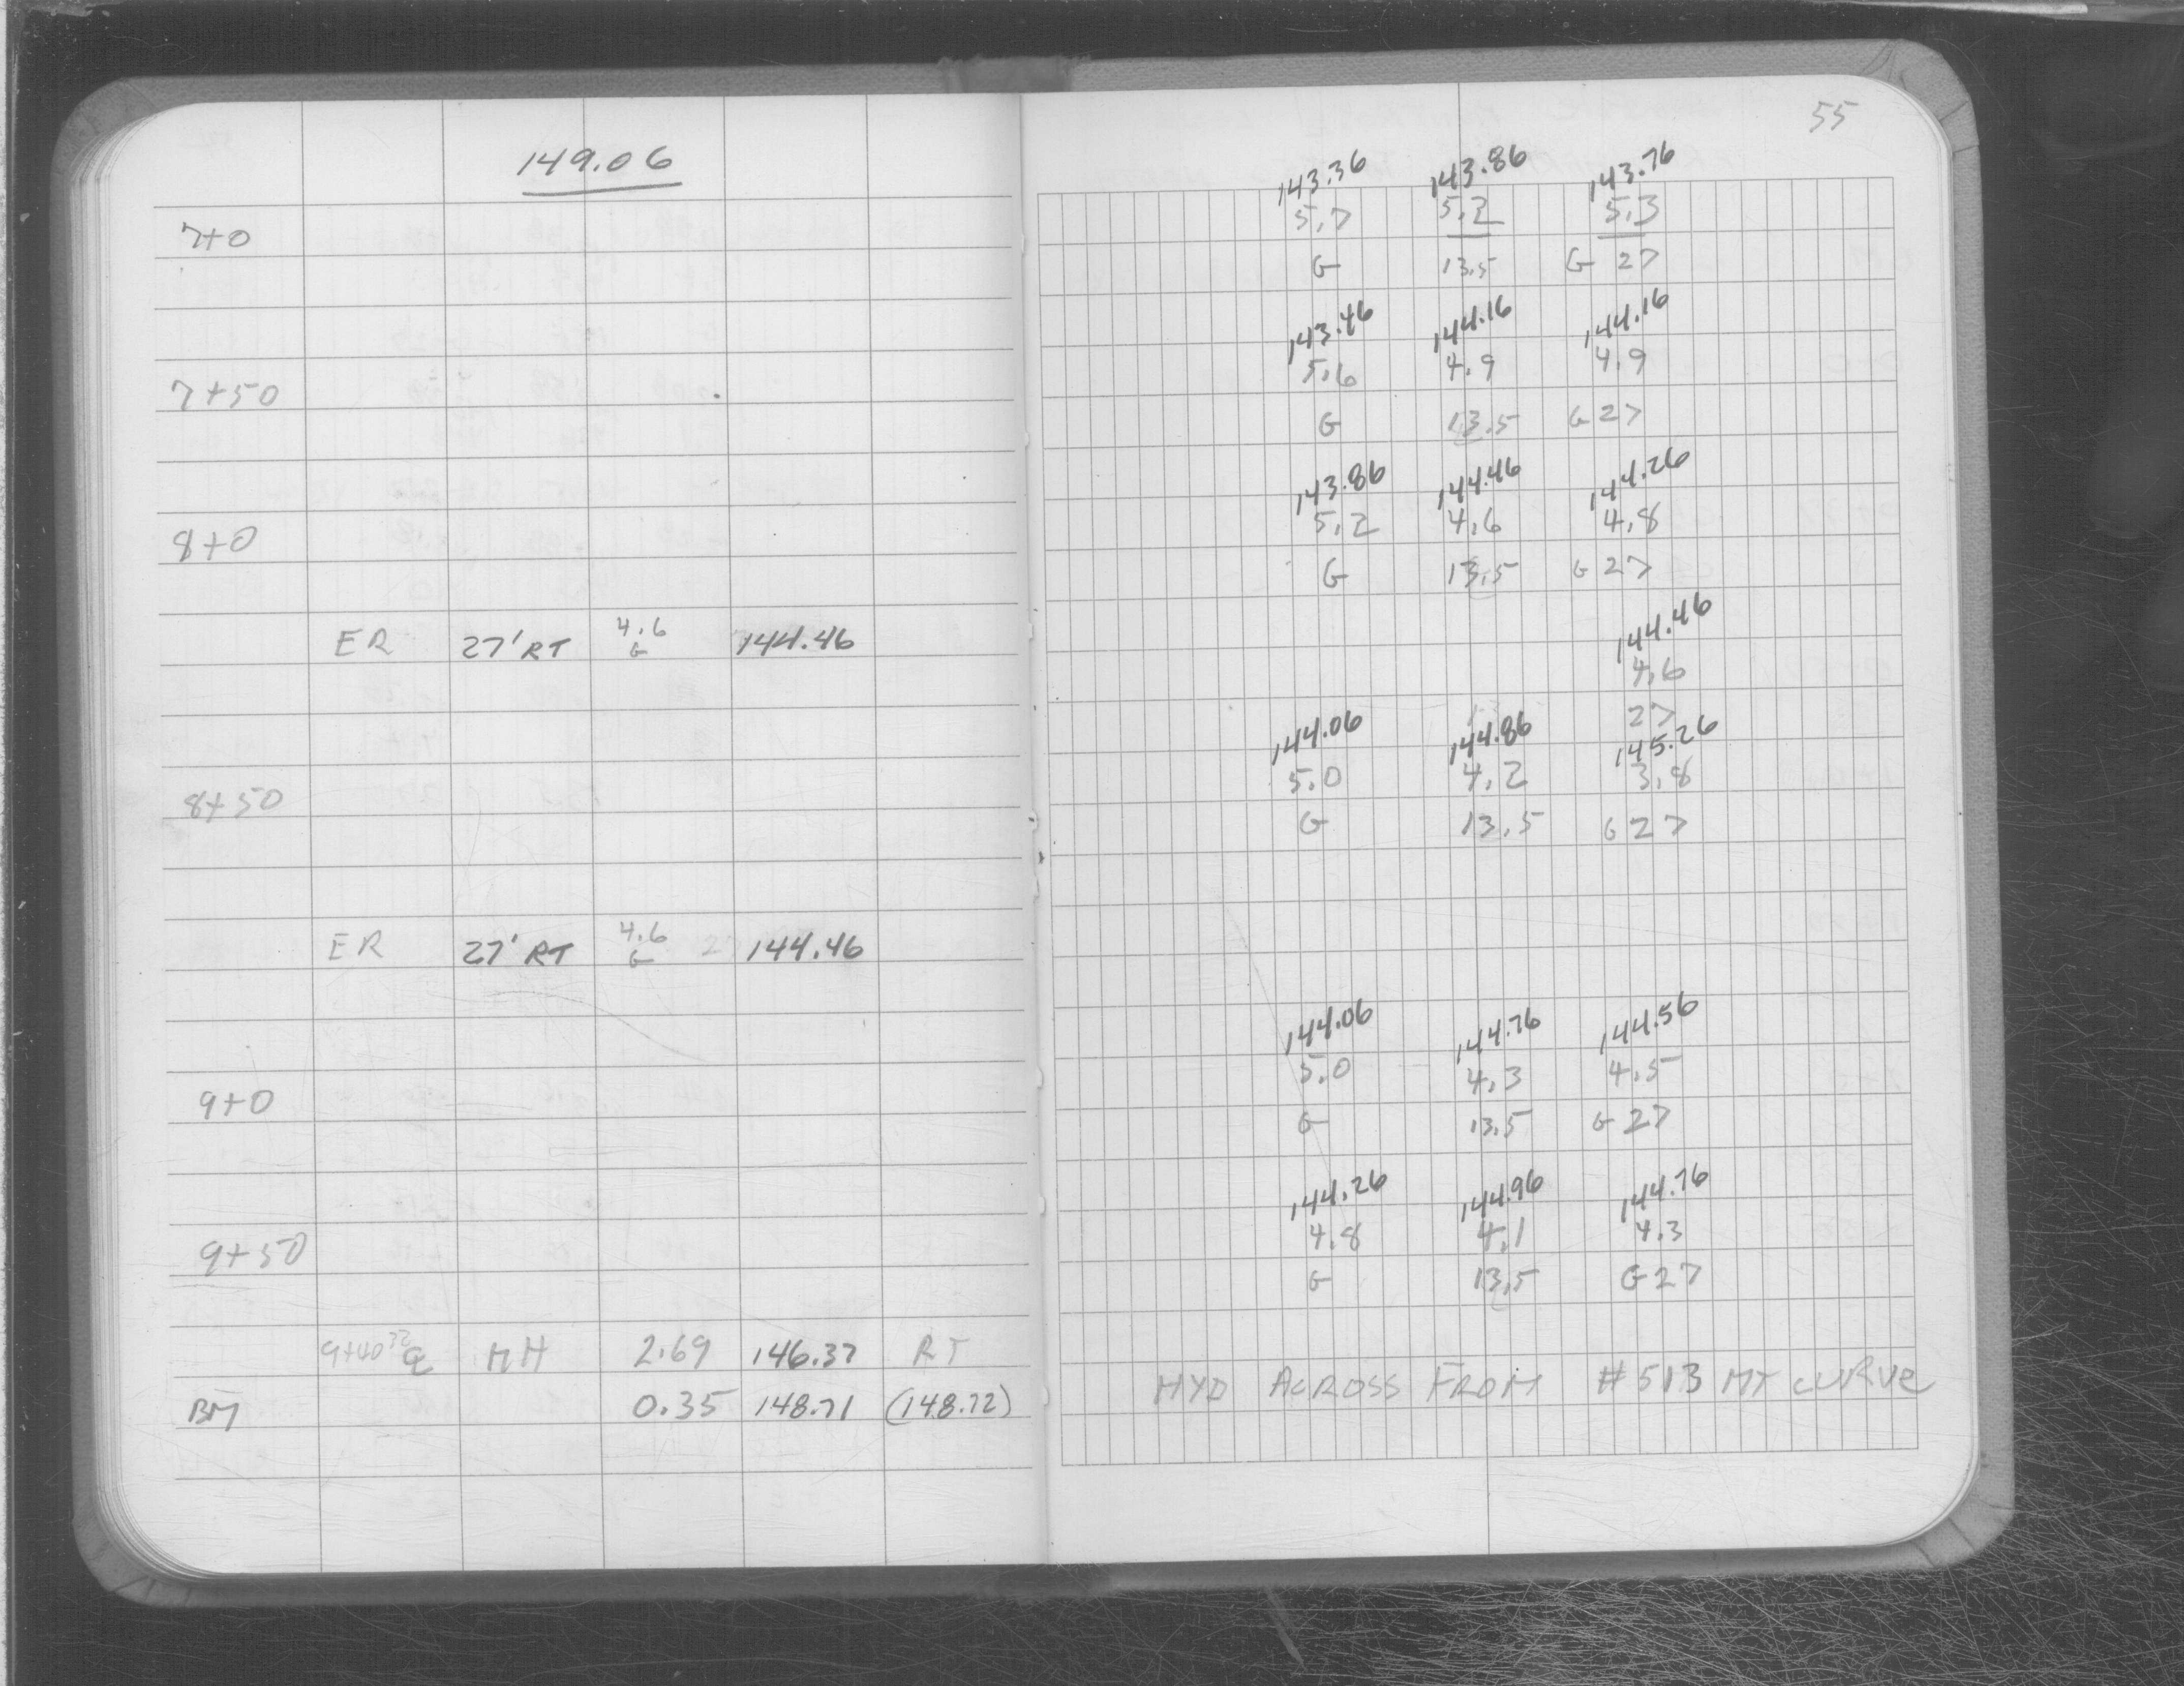 149.06
7+0
7+50
8+0
ER 27' RT 4.6 G 144.46
8+50
ER 27' RT 4.6 G 144.46
9+0
9+50
9+40 MH 2.69 146.37 RT
BM 0.35 148.71 (148.72)
55
143.36 143.86 143.76
5.7 5.2 5.3
G 13.5 G 27
143.46 144.16 144.16
5.6 4.9 4.9
G 13.5 G 27
143.86 144.46 144.26
5.2 4.6 4.8
G 13.5 G 27
144.46
4.6
27
144.06 144.86 145.26
5.0 4.2 3.8
G 13.5 G 27
144.06 144.76 144.56
5.0 4.3 4.5
G 13.5 G 27
144.26 144.96 144.76
4.8 4.1 4.3
G 13.5 G 27
HYD ACROSS FROM #513 MT CURVE